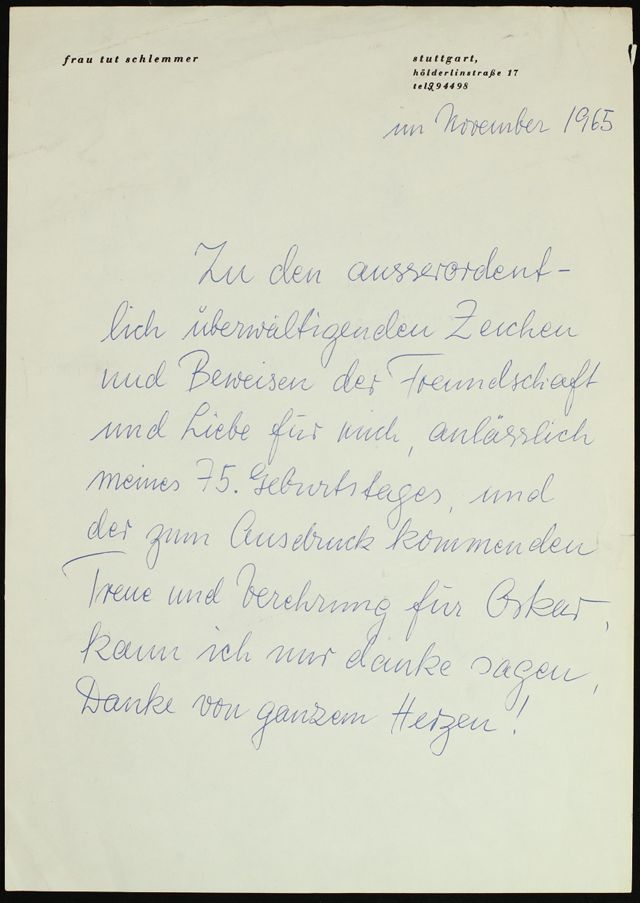 frau tut schlemmer
stuttgart,
hölderlinstraße 17
tel. 94498
im November 1965
Zu den ausserordent-
lich überwältigenden Zeichen
und Beweisen der Freundschaft
und Liebe für mich, anlässlich
meines 75. Geburtstages, und
der zum Ausdruck kommenden
Treue und Verehrung für Oskar,
kann ich nur danke sagen,
Danke von ganzem Herzen!